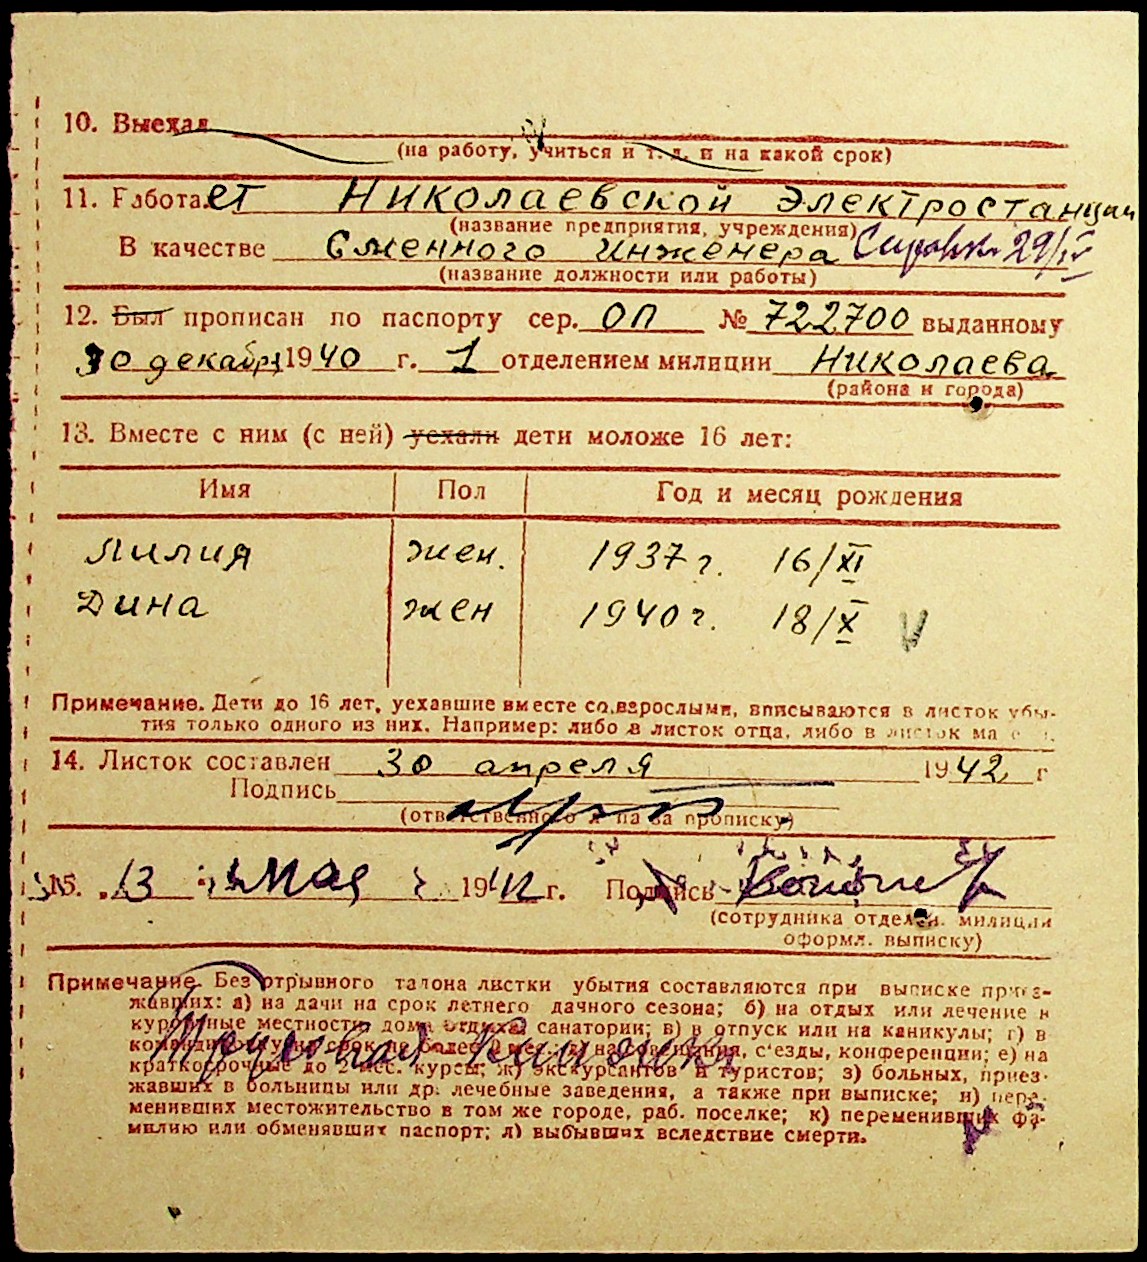 10. Выехал
(на работу, учиться и т. д. и на какой срок)
11. Работает Николаевской Электростанции
(название предприятия, учреждения)
В качестве Сменного инженера Справка 29/IV
(название должности или работы)
12. Был прописан по паспорту сер. ОП № 722700 выданному
30 декабря 1940 г. 1 отделением милиции Николаева
(района и города)
13. Вместе с ним (с ней) уехали дети моложе 16 лет:
Имя Пол Год и месяц рождения
Лилия жен. 1937 г. 16/XI
Дина жен 1940 г. 18/X V
Примечание. Дети до 16 лет, уехавшие вместе со взрослыми, вписываются в листок убы-
тия только одного из них. Например: либо в листок отца, либо в листок ма
14. Листок составлен 30 апреля 1942 г
Подпись
(ответственного л па за прописку)
15. 13 мая 1942 г. Подпись
(сотрудника отделен. милиции
оформл. выписку)
Примечание. Без отрывного талона листки убытия составляются при выписке приез-
жавших: а) на дачи на срок летнего дачного сезона; б) на отдых или лечение в
курортные местности, дома отдыха, санатории; в) в отпуск или на каникулы; г) в
командировку на срок не более 2 мес.; д) на совещания, с'езды, конференции; е) на
краткосрочные до 2 мес. курсы; ж) экскурсантов и туристов; з) больных, приез-
жавших в больницы или др. лечебные заведения, а также при выписке; и) пере-
менивших местожительство в том же городе, раб. поселке; к) переменивших фа-
милию или обменявших паспорт; л) выбывших вследствие смерти.
Трудовая